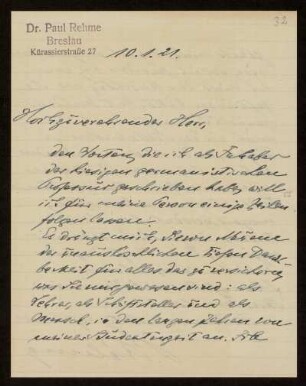 32
Dr. Paul Rehme
Breslau
Kürassierstraße 27
10.1.21.
Hochzuverehrender Herr,
den Worten, die ich als Inhaber
des hiesigen germanistischen
Ordinariats geschrieben habe, will
ich für meine Person einige Zeilen
folgen lassen.
Es drängt mich, Ihnen
der unauslöschlichen tiefen Dank-
barkeit für alles das zu versichern,
was Sie mir gewesen sind: als
Lehrer, als Schriftsteller und als
Mensch, in den langen Jahren von
meiner Studentenzeit an.